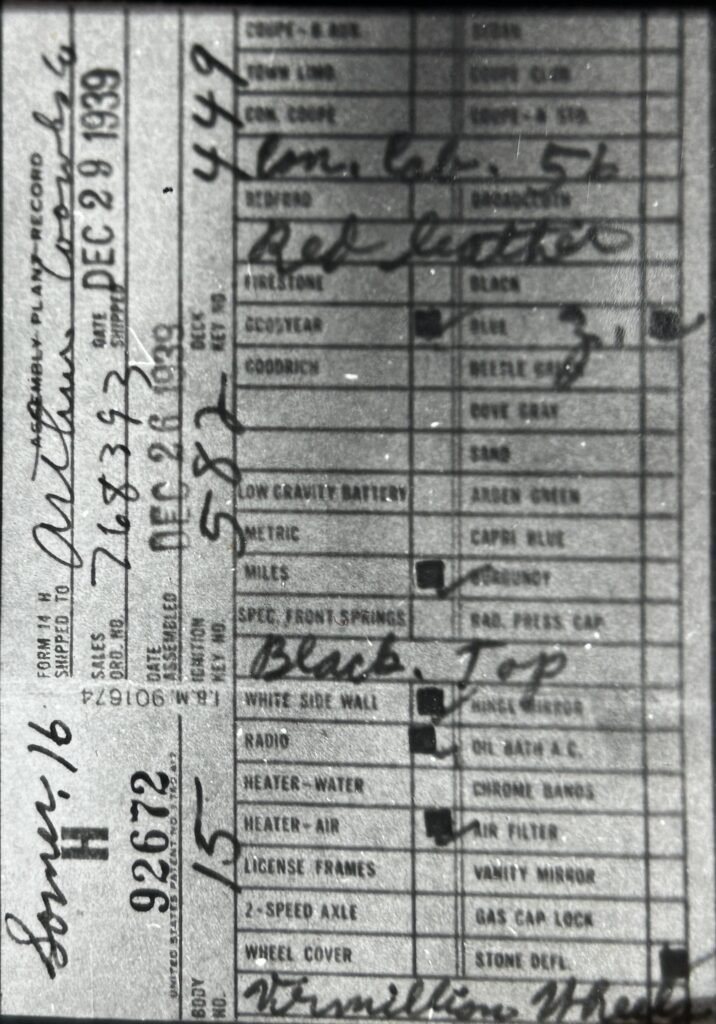 Somer. 16
H
92672
UNITED STATES PATENT NO.
I.B.M. 901674
FORM 14 H ASSEMBLY PLANT RECORD
SHIPPED TO Arthur
SALES ORD. NO. 768393 DATE SHIPPED DEC 29 1939
DATE ASSEMBLED DEC 26 1939
BODY NO. 15 IGNITION KEY NO. 582 DECK KEY NO. 449
COUPE-B AUX. SEDAN
TOWN LIMO. COUPE CLUB
CON. COUPE COUPE-A STD.
Con. Cab. 56
BEDFORD BROADCLOTH
Red leather
FIRESTONE BLACK
GOODYEAR BLUE 3.
GOODRICH BEETLE GREEN
COVE GRAY
SAND
LOW GRAVITY BATTERY ARDEN GREEN
METRIC CAPRI BLUE
MILES BURGUNDY
SPEC. FRONT SPRINGS RAD. PRESS. CAP
Black. Top
WHITE SIDE WALL HINGE MIRROR
RADIO OIL BATH A.C.
HEATER-WATER CHROME BANDS
HEATER-AIR AIR FILTER
LICENSE FRAMES VANITY MIRROR
2-SPEED AXLE GAS CAP LOCK
WHEEL COVER STONE DEFL.
Vermillion Wheels